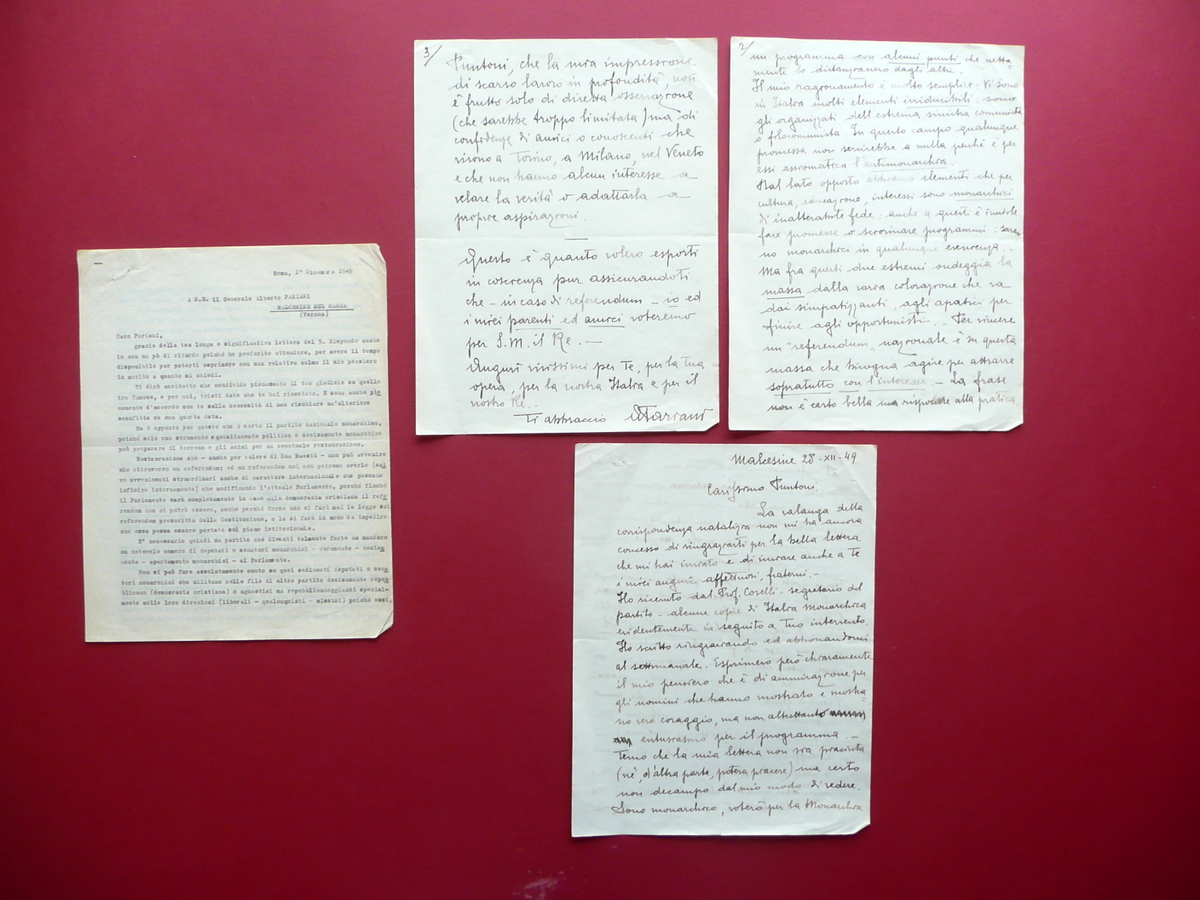 Roma, 1° Dicembre 1949
A S.E. il Generale Alberto PARIANI
MALCESINE SUL GARDA
(Verona)
Caro Pariani,
grazie della tua lunga e significativa lettera del 5. Rispondo anche
io con un pò di ritardo poiché ho preferito attendere, per avere il tempo
disponibile per poterti esprimere con una relativa calma il mio pensiero
in merito a quanto mi chiedi.
Ti dirò anzitutto che condivido pienamente il tuo giudizio su quelle
tre famose, e per noi, tristi date che tu hai ricordato. E sono anche pie
namente d'accordo con te sulla necessità di non rischiare un'ulteriore
sconfitta su una quarta data.
Ma è appunto per questo che è sorto il partito nazionale monarchico,
poiché solo uno strumento squisitamente politico e decisamente monarchico
può preparare il terreno e gli animi per un eventuale restaurazione.
Restaurazione che - anche per volere di Sua Maestà - non può avvenire
che attraverso un referendum; ed un referendum noi non potremo averlo (sal
vo avvenimenti straordinari anche di carattere internazionale che possano
influire internamente) che modificando l'attuale Parlamento, perché finché
il Parlamento sarà completamente in mano alla democrazia cristiana il refe
rendum non ci potrà essere, anche perché forse non si farà mai la legge sul
referendum prescritto dalla Costituzione, o la si farà in modo da impedire
che esso possa essere portato sul piano istituzionale.
E' necessario quindi un partito che diventi talmente forte da mandare
un notevole numero di deputati e senatori monarchici - veramente - decisa
mente - apertamente monarchici - al Parlamento.
Non si può fare assolutamente conto su quei sedicenti deputati e sena
tori monarchici che militano nelle file di altro partito decisamente repub
blicano (democrazia cristiana) o agnostici ma repubblicaneggianti special-
mente nelle loro direzioni (liberali - qualunquisti - missini) poiché essi,
3/
Puntoni, che la mia impressione
di scarso lavoro in profondità, non
è frutto solo di diretta osservazione
(che sarebbe troppo limitata) ma di
confidenze di amici o conoscenti che
vivono a Torino, a Milano, nel Veneto
e che non hanno alcun interesse a
velare la verità o adattarla a
proprie aspirazioni.
Questo è quanto volevo esporti
in coscienza pur assicurandoti
che - in caso di referendum - io ed
i miei parenti ed amici voteremo
per S.M. il Re. -
Auguri vivissimi per Te, per la tua
opera, per la nostra Italia e per il
nostro Re.
Ti abbraccio APariani
2/
un programma con alcuni punti che netta
mente lo distanziano dagli altri.
Il mio ragionamento è molto semplice: Vi sono
in Italia molti elementi irriducibili: sono
gli organizzati dell'estrema sinistra comunista
o filocomunista. In questo campo qualunque
promessa non servirebbe a nulla perché è per
essi assiomatica l'antimonarchia.
Dal lato opposto abbiamo elementi che per
cultura, educazione, interessi sono monarchici
di inalterabile fede: anche a questi è inutile
fare promesse o sciorinare programmi: saran
no monarchici in qualunque evenienza. -
Ma fra questi due estremi ondeggia la
massa dalla varia colorazione che va
dai simpatizzanti, agli apatici per
finire agli opportunisti. - Per vincere
un "referendum" nazionale è su questa
massa che bisogna agire per attrarre
sopratutto con l'interesse. - La frase
non è certo bella ma risponde alla pratica
Malcesine 28-XII-49
Carissimo Puntoni
La valanga della
corrispondenza natalizia non mi ha ancora
concesso di ringraziarti per la bella lettera
che mi hai inviato e di inviare anche a te
i miei auguri affettuosi, fraterni. -
Ho ricevuto dal Prof. Coselli - segretario del
partito - alcune copie di Italia Monarchica
evidentemente in seguito a Tuo intervento.
Ho scritto ringraziando ed abbonandomi
al settimanale. Esprimevo però chiaramente
il mio pensiero che è di ammirazione per
gli uomini che hanno mostrato e mostra
no vero coraggio, ma non altrettanto
entusiasmo per il programma. -
Temo che la mia lettera non sia piaciuta
(né, d'altra parte, poteva piacere) ma certo
non decampo dal mio modo di vedere.
Sono monarchico, voterò per la Monarchia